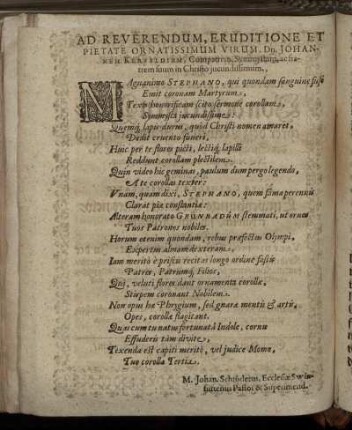 AD REVERENDUM, ERUDITIONE ET
PIETATE ORNATISSIMUM VIRUM, Dn. JOHAN-
NEM Compatrem, ac fra-
trem suum in Christo jucundissimum.
MAgnanimo STEPHANO, qui quondam sanguine fuso
Emit coronam Martyrum,
Texis honorificam scito sermone corollam,
Symmysta jucundissime:
Quemq; lapis durus, quòd Christi nomen amaret,
Dedit cruento funeri,
Huic per te flores picti, lectiq; lapilli
Reddunt corollam plectilem.
Quin video hic geminas, paulum dum pergo legendo,
A te corollas texier:
Vnam, quam dixi, STEPHANO, quem fama perennis
Claret pia constantia:
Alteram honorato GRÜNRADUM stemmati, ut ornes
Tuos Patronos nobiles.
Horum etenim quondam, rebus præfectus Olympi,
Expertus almam dexteram.
Iam meritò è priscis recitas longo ordine fastis
Patres, Patrumq; Filios,
Qui, veluti flores dant ornamenta corollæ,
Stirpem coronant Nobilem.
Non opus hæ Phrygium, sed gnaræ mentis & artis,
Opes, corollæ flagitant.
Quas cum tu natus fortunatâ Indole, cornu
Effuderis tàm divite,
Texenda est capiti meritò, vel judice Momo,
Tuo corolla Tertia.
M. Johan. Ecclesiæ
Pastor & Superintend.